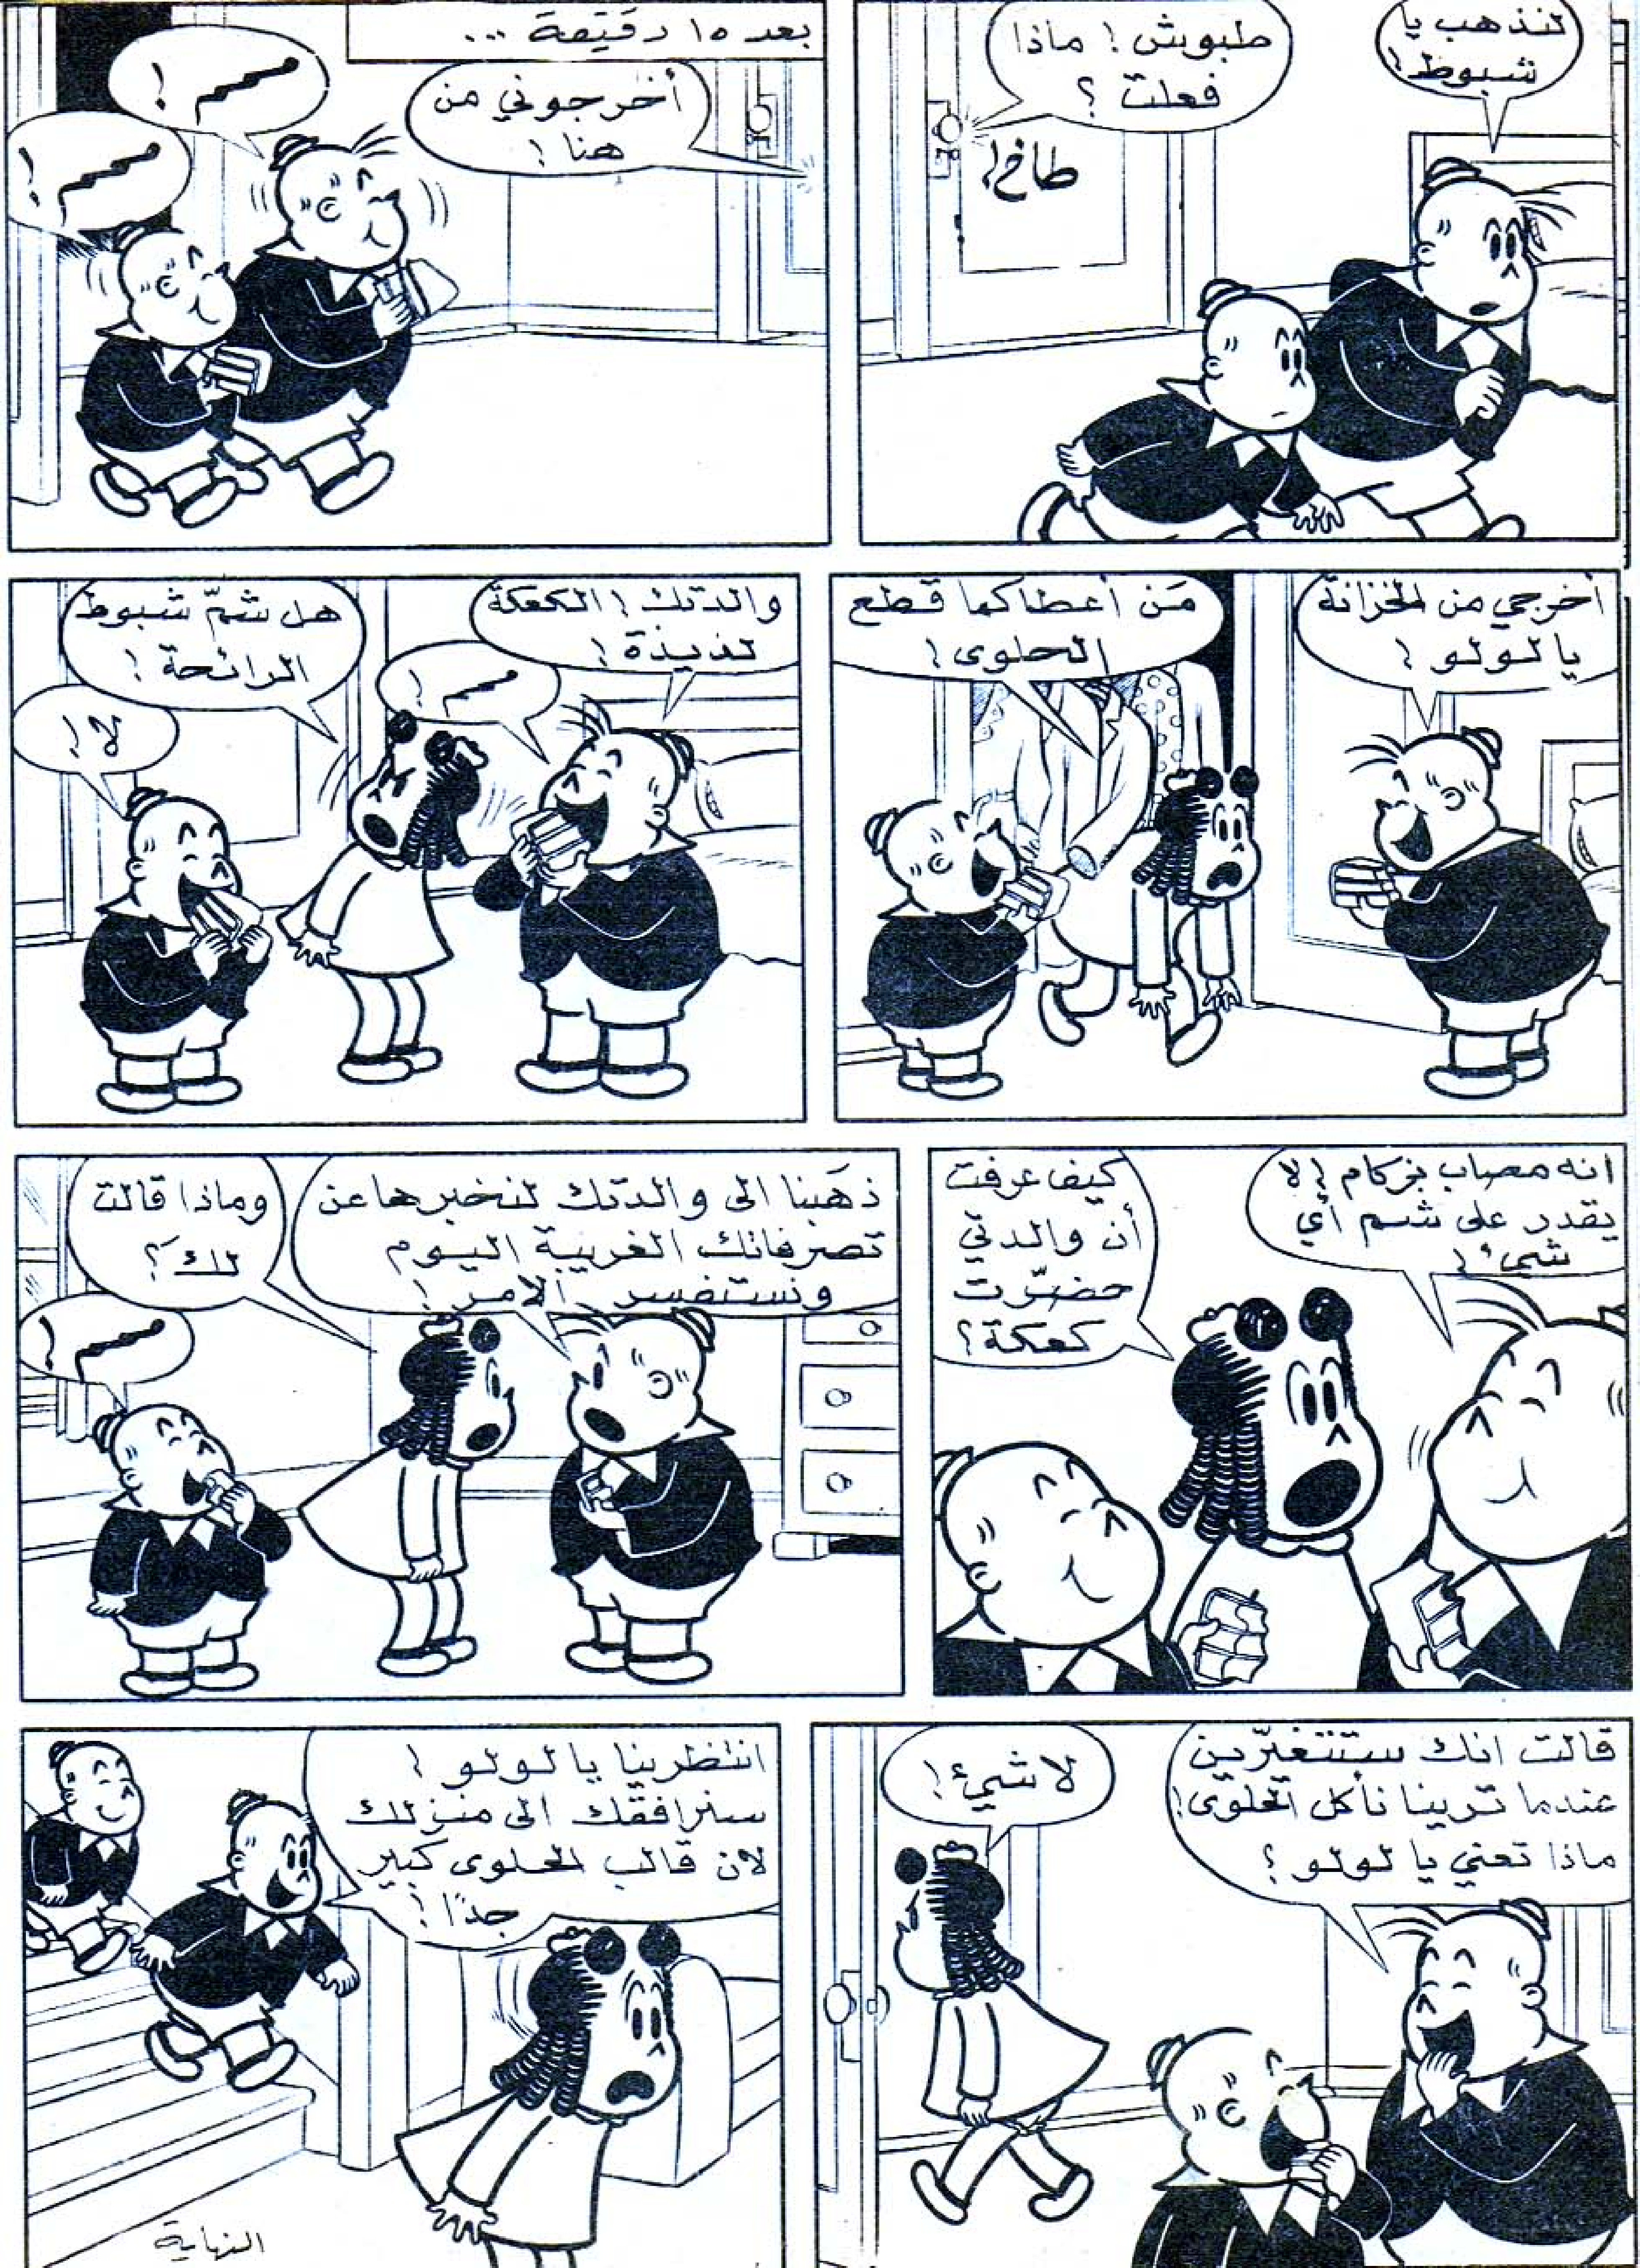 لنذهب يا
شبوط!
طبوش! ماذا
فعلت؟
طاخ!
بعد ١٥ دقيقة ...
أخرجوني من
هنا!
ممم!
ممم!
أخرجي من الخزانة
يا لولو!
مَن أعطاكما قطع
الحلوى!
والدتك! الكعكة
لذيذة!
ممم!
هل شمّ شبوط
الرائحة!
لا!
انه مصاب بزكام! لا
يقدر على شم أي
شيئ!
كيف عرفت
أن والدتي
حضّرت
كعكة؟
ذهَبنا الى والدتك لنخبرها عن
تصرفاتك الغريبة اليوم
ونستفسر الامر!
وماذا قالت
لكَ؟
ممم!
قالت انك ستتغيّرين
عندما ترينا نأكل الحلوى!
ماذا تعني يا لولو؟
لا شيئ!
انتظرينا يا لولو!
سنرافقك الى منزلك
لان قالب الحلوى كبير
جدًا!
النهاية